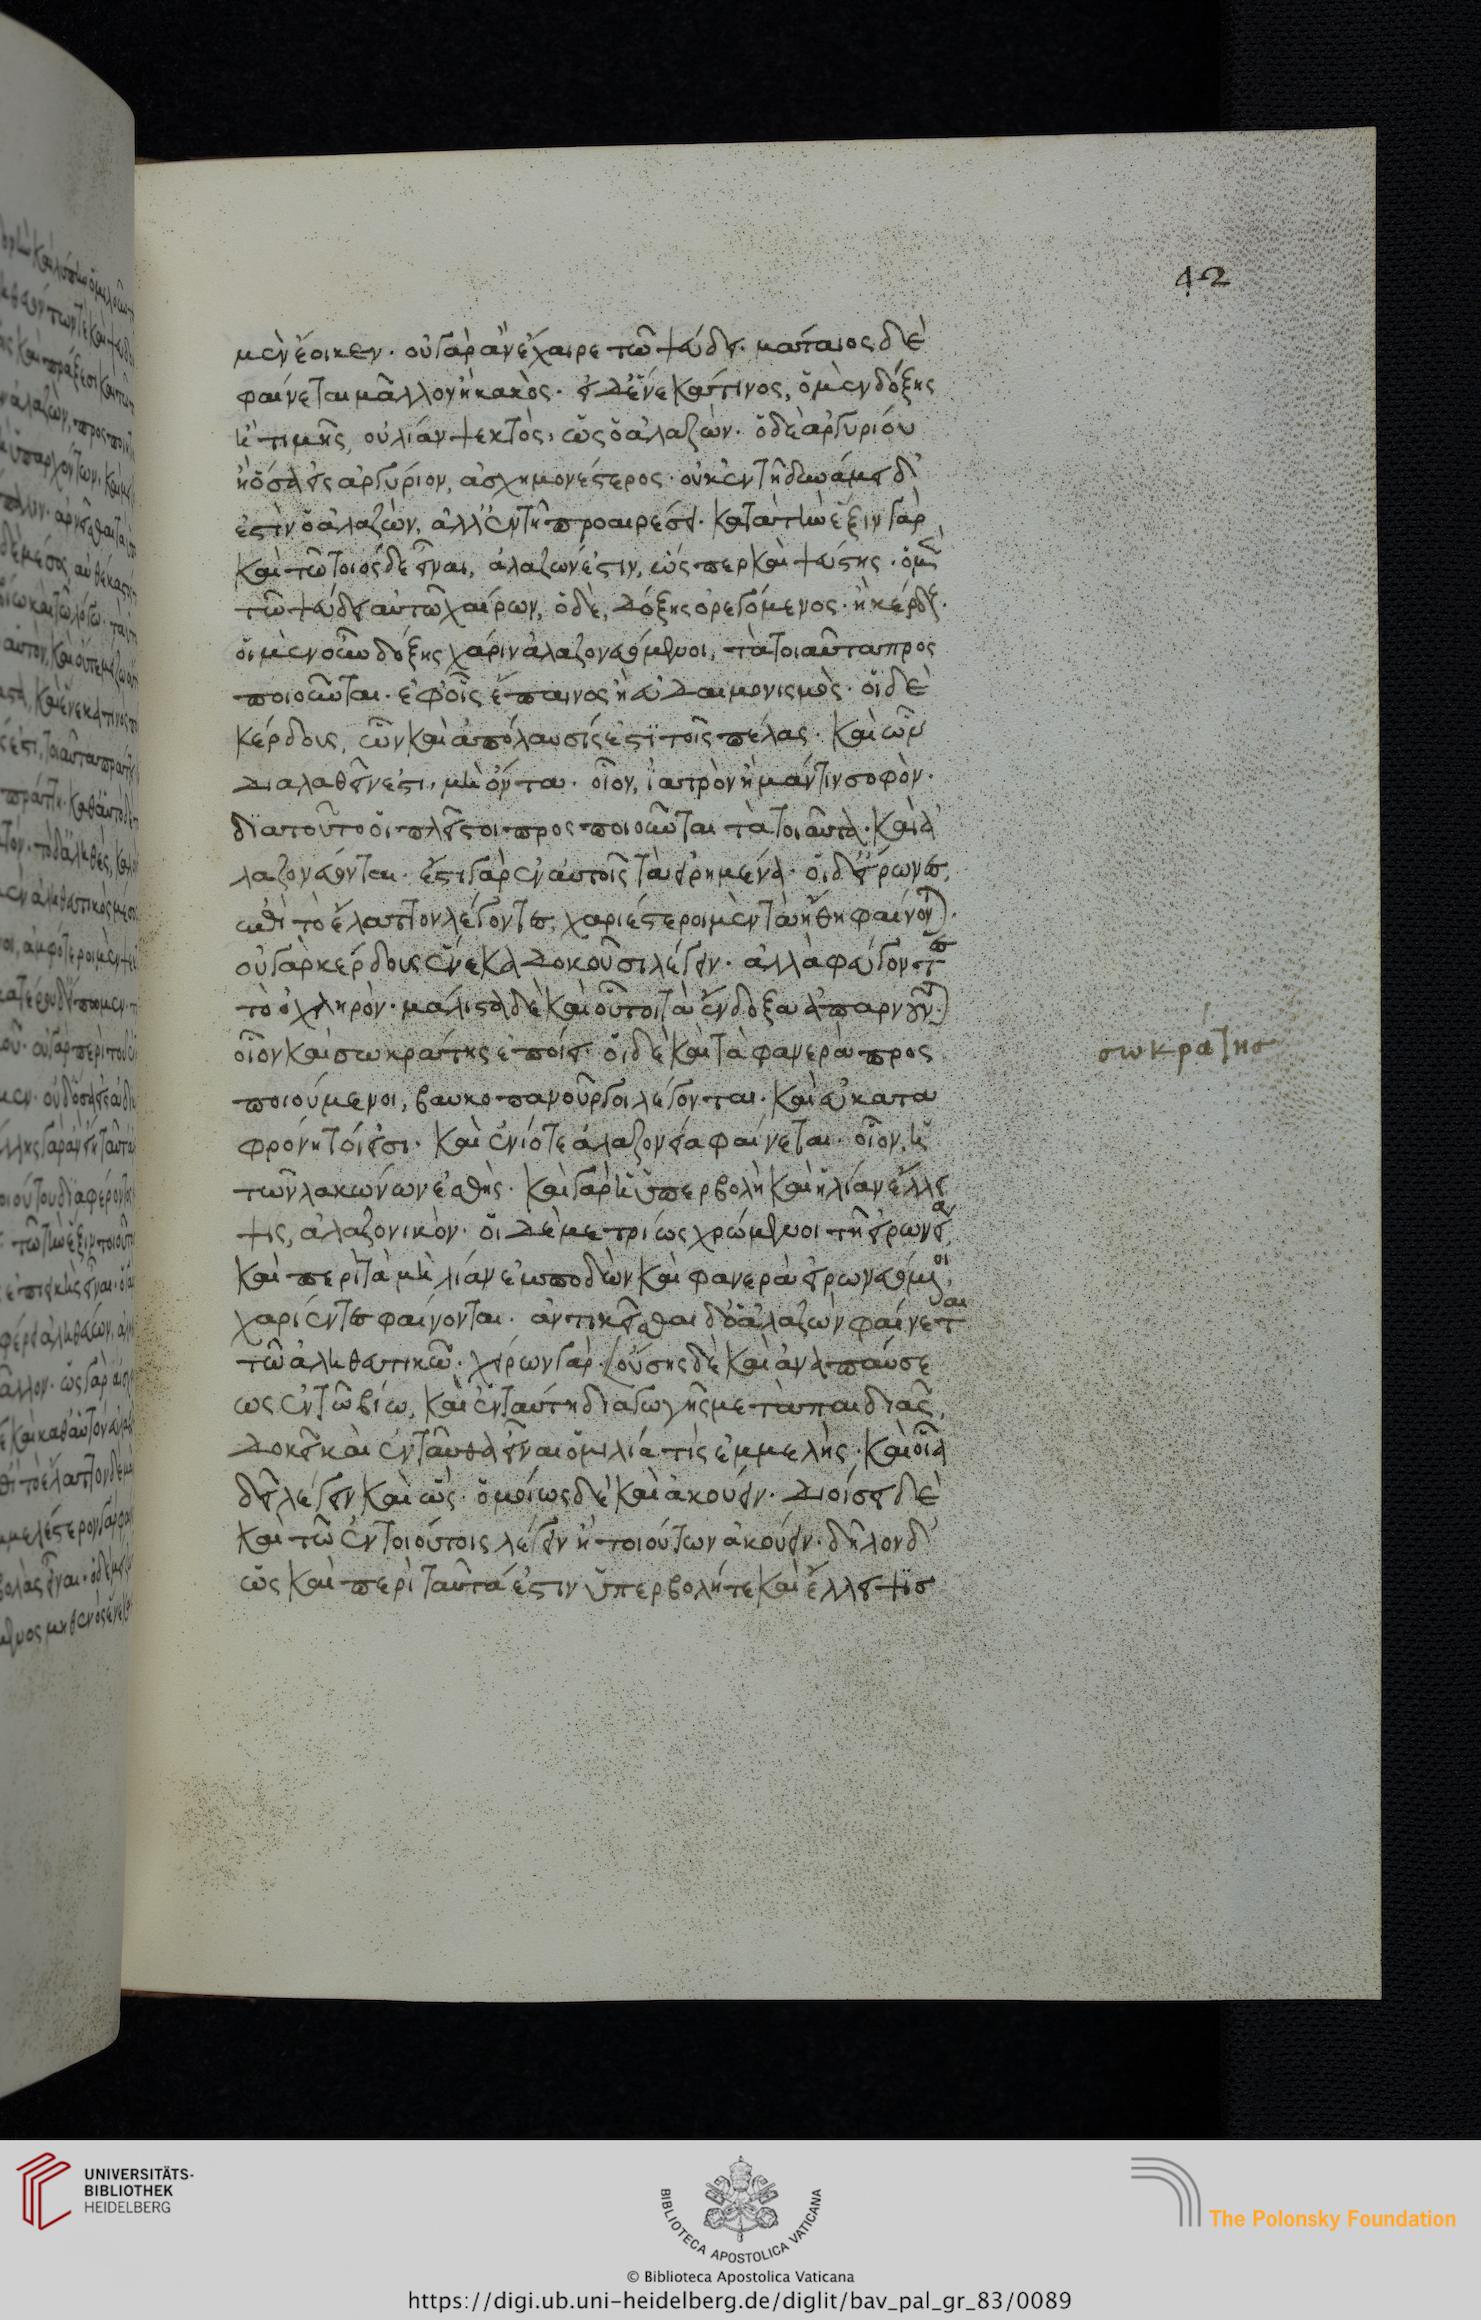 42
μὲν ἔοικεν· οὐ γὰρ ἂν ἔχαιρε τῶ ψεύδει· μάταιος δὲ
φαίνεται μᾶλλον ἢ κακός· εἰ δ' ἕνεκά τινος, ὁ μὲν δόξης
ἢ τιμῆς, οὐ λίαν ψεκτὸς, ὡς ὁ ἀλαζών· ὁ δὲ ἀργυρίου
ἢ ὅσα εἰς ἀργύριον, ἀσχημονέστερος· οὐκ ἐν τῆ δυνάμει δ'
ἐστὶν ὁ ἀλαζών, ἀλλ' ἐν τῆ προαιρέσει· κατὰ τὴν ἕξιν γὰρ
καὶ τῶ τοιόσδε εἶναι, ἀλαζών ἐστιν, ὥσπερ καὶ ψεύστης· ὁ μὲν
τῶ ψεύδει αὐτῶ χαίρων, ὁ δὲ, δόξης ὀρεγόμενος· ἢ κέρδους·
οἱ μὲν οὖν δόξης χάριν ἀλαζονευόμενοι, τὰ τοιαῦτα προσ
ποιοῦνται· ἐφ' οἷς ἔπαινος ἢ εὐδαιμονισμός· οἱ δὲ
κέρδους, ὧν καὶ ἀπόλαυσίς ἐστι τοῖς πέλας· καὶ ὧν
διαλαθεῖν ἔστι, μὴ ὄντα· οἷον, ἰατρὸν ἢ μάντιν σοφόν·
διὰ τοῦτο οἱ πλεῖστοι προσποιοῦνται τὰ τοιαῦτα· καὶ ἀ
λαζονεύονται· ἔστι γὰρ ἐν αὐτοῖς τὰ εἰρημένα· οἱ δ' εἴρωνες,
ἐπὶ τὸ ἔλαττον λέγοντες, χαριέστεροι μὲν τὰ ἤθη φαίνονται·
οὐ γὰρ κέρδους ἕνεκα δοκοῦσι λέγειν· ἀλλὰ φεύγοντες
τὸ ὀχληρόν· μάλιστα δὲ καὶ οὗτοι τὰ ἔνδοξα ἀπαρνοῦνται
οἷον καὶ σωκράτης ἐποίει· οἱ δὲ καὶ τὰ φανερὰ προσ
ποιούμενοι, βαυκοπανοῦργοι λέγονται· καὶ εὐκατα
φρόνητοί εἰσι· καὶ ἐνίοτε ἀλαζονεία φαίνεται· οἷον, ἡ
τῶν λακώνων ἐσθής· καὶ γὰρ ἡ ὑπερβολὴ καὶ ἡ λίαν ἔλλει
ψις, ἀλαζονικόν· οἱ δὲ μετρίως χρώμενοι τῆ εἰρωνεία,
καὶ περὶ τὰ μὴ λίαν ἐμποδὼν καὶ φανερὰ εἰρωνευόμενοι,
χαρίεντες φαίνονται· ἀντικεῖσθαι δ' ὁ ἀλαζὼν φαίνεται
τῶ ἀληθευτικῶ· χείρων γάρ· οὔσης δὲ καὶ ἀναπαύσε
ως ἐν τῶ βίω, καὶ ἐν ταύτη διαγωγῆς μετὰ παιδιᾶς,
δοκεῖ καὶ ἐνταῦθα εἶναι ὁμιλία τίς ἐμμελής· καὶ οἷα
δεῖ λέγειν καὶ ὥς· ὁμοίως δὲ καὶ ἀκούειν· διοίσει δὲ
καὶ τῶ ἐν τοιούτοις λέγειν ἢ τοιούτων ἀκούειν· δῆλον δ'
ὡς καὶ περὶ ταῦτά ἐστιν ὑπερβολή τε καὶ ἔλλειψις
σωκράτης
UNIVERSITÄTS-
BIBLIOTHEK
HEIDELBERG
BIBLIOTECA APOSTOLICA VATICANA
The Polonsky Foundation
© Biblioteca Apostolica Vaticana
https://digi.ub.uni-heidelberg.de/diglit/bav_pal_gr_83/0089